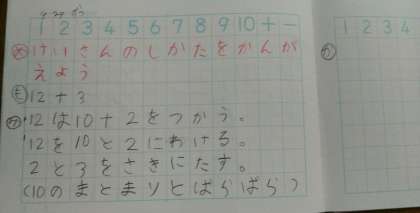 1 2 3 4 5 6 7 8 9 10 + −
め けいさんのしかたをかんが
えよう
も 12+3
12は10+2をつかう。
12を10と2にわける。
2と3をさきにたす。
(10のまとまりとばらばら)
1 2 3 4